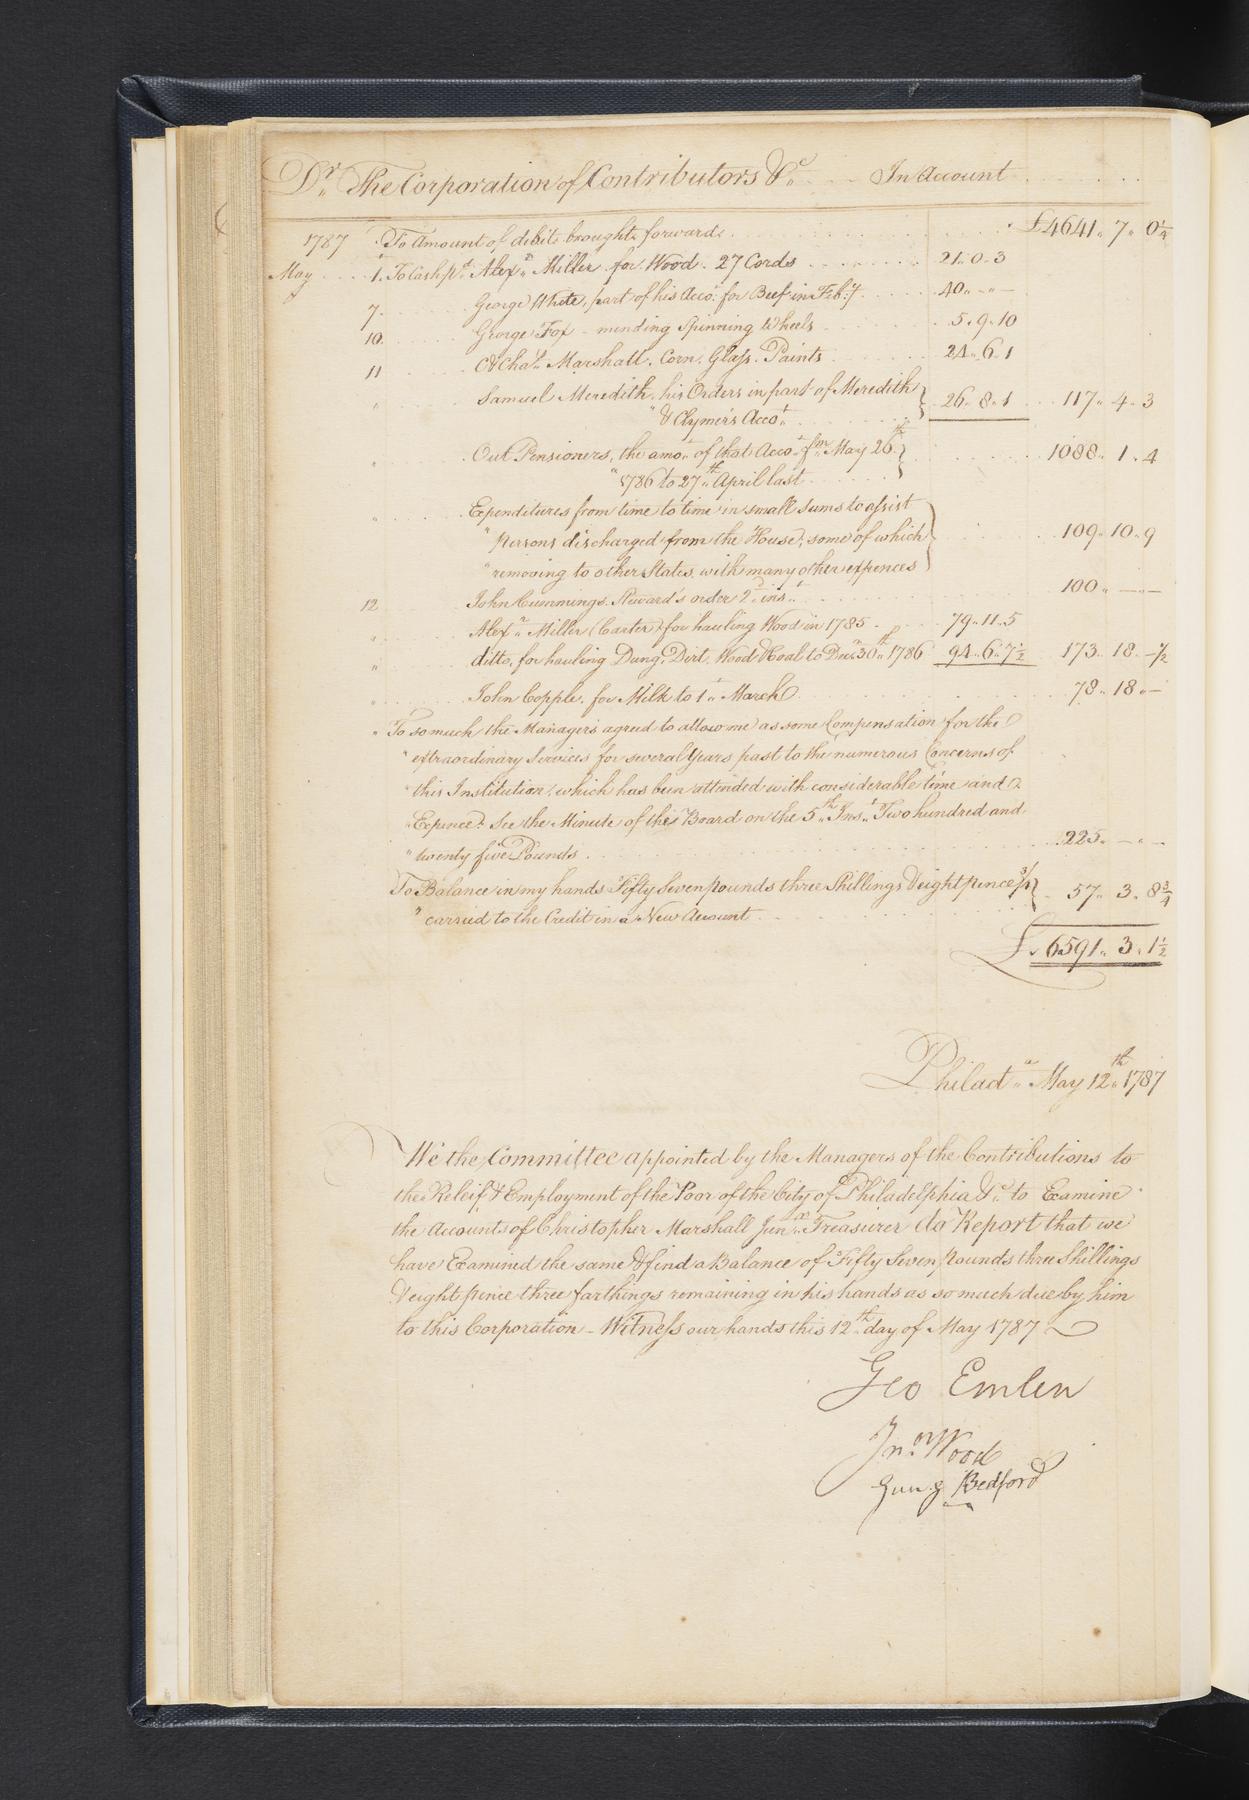 Dr. The Corporation of Contributors &c. In Account
£4641 " 7 " 0¼
1787 To Amount of debits brought forwards
May 1. To Cash pd. Alexr. Miller for Wood. 27 Cords 21 " 0 " 3
7. George White, part of his Acco. for Beef in Feb:y 40 " - " -
10. George Fox - mending Spinning Wheels 5 " 9 " 10
11 C & Chas. Marshall, Corn, Glass, Paints 24 " 6 " 1
" Samuel Meredith, his Orders in part of Meredith
" & Clymer's Accot. 26 " 8 " 1 117 " 4 " 3
" Out Pensioners, the amot. of that Accot. fm. May 26th
" 1786 to 27th April last 1088 " 1 " 4
" Expenditures from time to time in small sums to assist
" persons discharged from the House, some of which
" removing to other States, with many other expences 109 " 10 " 9
12 John Cummings Steward's order 2d. inst. 100 " - " -
" Alexr. Miller (Carter) for hauling Wood in 1785 79 " 11 " 5
" ditto, for hauling Dung, Dirt, Wood & Coal to Decr. 30th 1786 94 " 6 " 7½ 173 " 18 " -½
" John Copple, for Milk to 1st March 78 " 18 " -
" To so much the Managers agreed to allow me as some Compensation for the
" extraordinary Services for several Years past to the numerous Concerns of
" this Institution, which has been attended with considerable time and
" Expence. See the Minute of their Board on the 5th Inst. Two hundred and
" twenty five Pounds 225 " - " -
To Balance in my hands Fifty Seven pounds three Shillings & eight pence 3/4
" carried to the Credit in a New Account 57 " 3 " 8¾
£ 6591 " 3 " 1½
Philada. May 12th 1787
We the Committee appointed by the Managers of the Contributions to
the Releif & Employment of the Poor of the City of Philadelphia &c. to Examine
the Accounts of Christopher Marshall Junr. Treasurer do Report that we
have Examined the same & find a Balance of Fifty Seven pounds three Shillings
& eight pence three farthings remaining in his hands as so much due by him
to this Corporation - Witness our hands this 12th day of May 1787
Geo Emlen
Jno. Wood
Gung Bedford